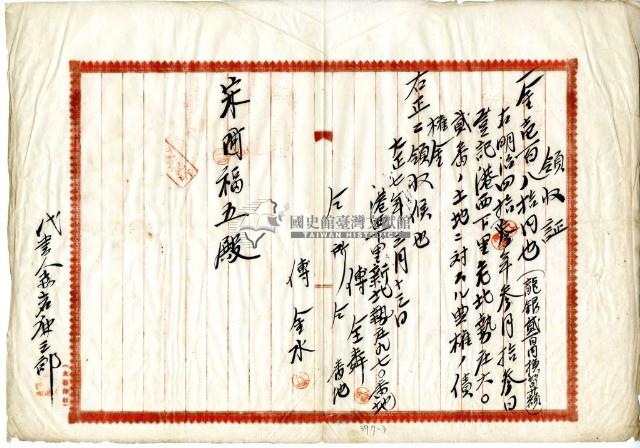 領収証
一金壱百八拾円也(龍銀貳百円換算額)
右明治四拾 年參月拾參日
登記港西下里老北勢庄六〇
貳番ノ土地ニ対スル典権ノ債
権金
右正ニ領収候也
大正七年三月十三日
港西下里新北勢庄九七〇番地
傳 全舞
仝所仝番地
傳 金水
宋阿福五殿
代書人 三郎
國史館臺灣文獻館
TAIWAN HISTORICA
397-3